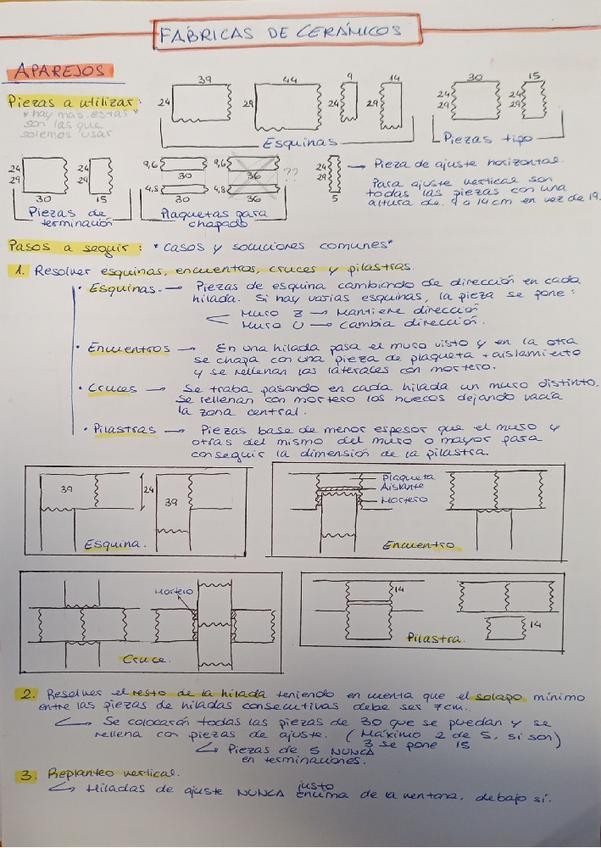 FÁBRICAS DE CERÁMICOS
APAREJOS
Piezas a utilizar:
*hay más, estas
son las que
solemos usar
39
24
44
29
9
14
Esquinas
30
24
29
15
24
29
Piezas tipo
24
29
30
24
29
15
Piezas de
terminación
9,6
30
9,6
36
4,8
30
4,8
36
??
Plaquetas para
chapado
24
29
5
→ Pieza de ajuste horizontal.
Para ajuste vertical son
todas las piezas con una
altura de 9 o 14 cm en vez de 19.
Pasos a seguir: "casos y soluciones comunes"
1. Resolver esquinas, encuentros, cruces y pilastras.
• Esquinas. → Piezas de esquina cambiando de dirección en cada
hilada. Si hay varias esquinas, la pieza se pone:
Muro Z → Mantiene dirección
Muro U → Cambia dirección.
• Encuentros → En una hilada pasa el muro visto y en la otra
se chapa con una pieza de plaqueta + aislamiento
y se rellenan los laterales con mortero.
• Cruces → Se traba pasando en cada hilada un muro distinto.
Se rellenan con mortero los huecos dejando vacía
la zona central.
• Pilastras → Piezas base de menor espesor que el muro y
otras del mismo del muro o mayor para
conseguir la dimensión de la pilastra.
39
24
39
Esquina.
Plaqueta
Aislante
Mortero
Encuentro
Mortero
Cruce.
14
14
Pilastra.
2. Resolver el resto de la hilada teniendo en cuenta que el solapo mínimo
entre las piezas de hiladas consecutivas debe ser 7cm.
↳ Se colocarán todas las piezas de 30 que se puedan y se
rellena con piezas de ajuste. (Máximo 2 de 5, si son
3 se pone 15)
↳ Piezas de 5 NUNCA
en terminaciones.
3. Replanteo vertical.
↳ Hiladas de ajuste NUNCA justo encima de la ventana, debajo sí.